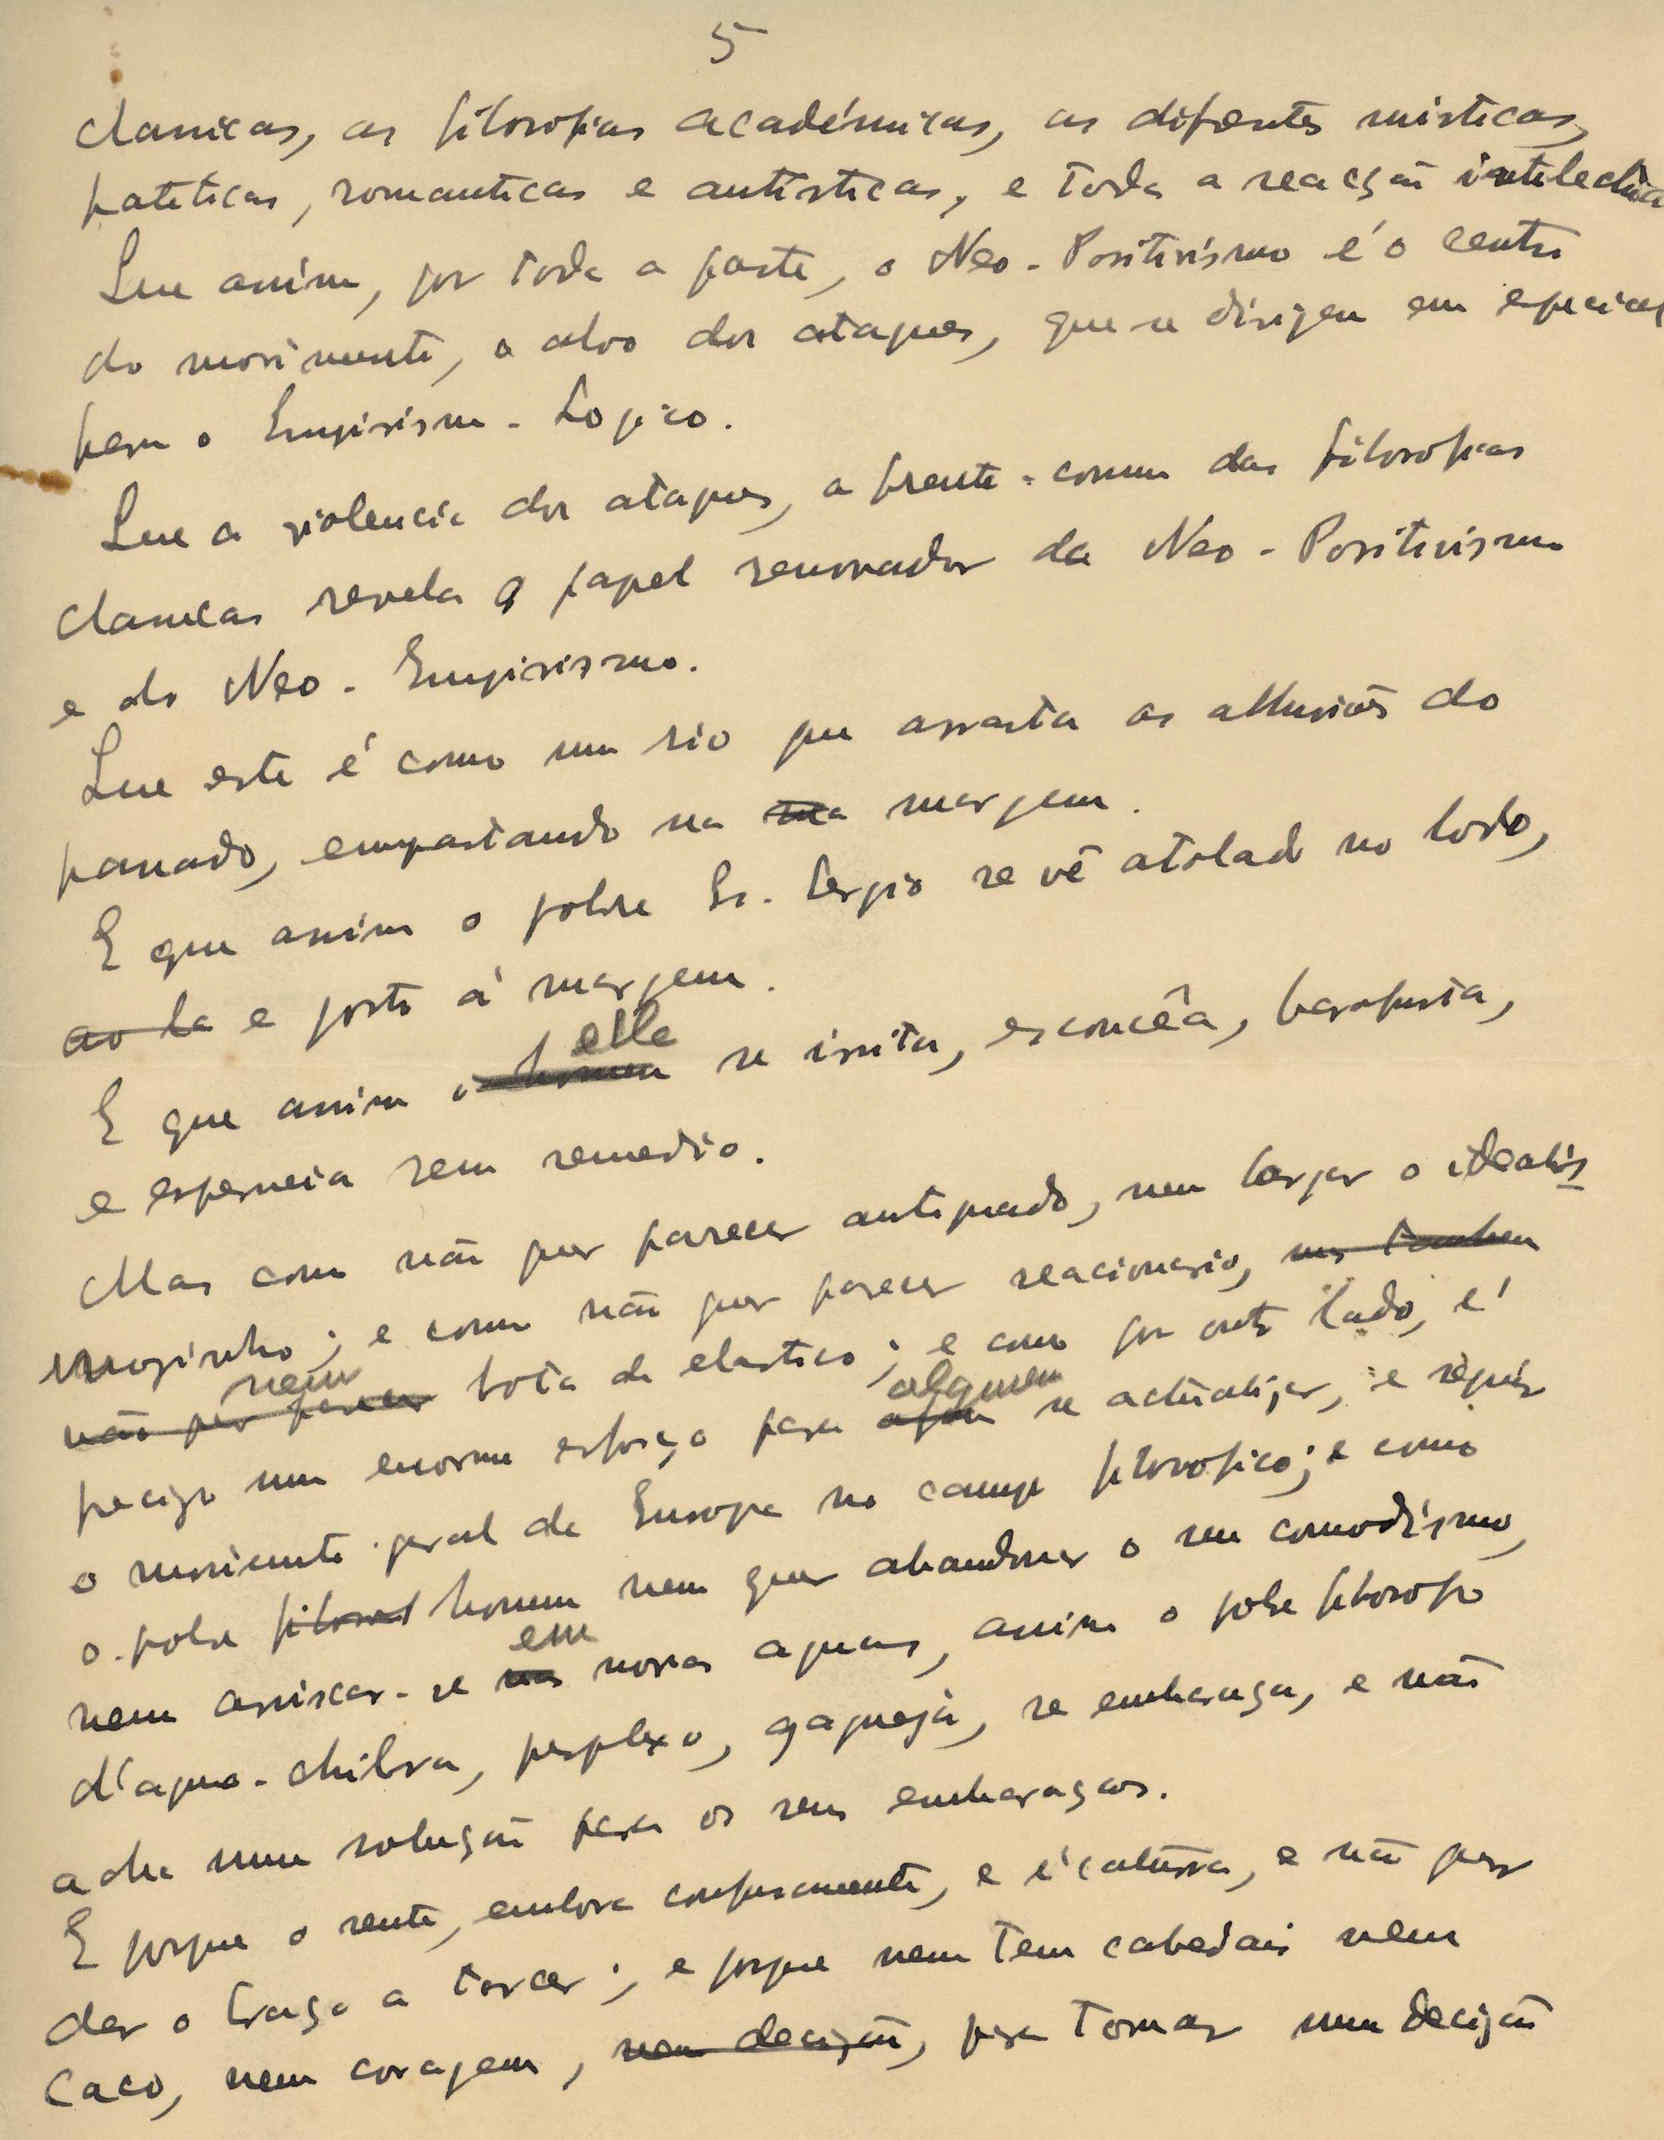 5
classicas, as filosofias académicas, as difrentes misticas,
pateticas, romanticas e artisticas, e toda a reacção intelectua
Que assim, por toda a parte, o Neo-Positivismo é o centro
do movimento, o alvo dos ataques, que se dirigem em especial
para o Empirismo-Logico.
Que a violencia dos ataques, a frente-comum das filosofias
classicas revela o papel renovador do Neo-Positivismo
e do Neo-Empirismo.
Que este é como um rio que arrasta as alluviões do
passado, empastando na ma margem.
E que assim o pobre Sr. Sergio se vê atolado no lodo,
ao la e posto á margem.
elle
E que assim o homem se irrita, esconcêa, barafusta,
e esperneia sem remedio.
Mas como não quer parecer antiquado, nem largar o idealis
mozinho; e como não quer parecer reacionario, nas tambem
nem
não quer parecer bota de elastico; e como por outro lado, é
alguem
preciso um enorme esforço para se actualizar, e seguir
o movimento geral da Europa no campo filosofico; e como
o pobre filosof homem nem quer abandonar o seu comodismo,
em
nem arriscar-se nas novas aguas, assim o pobre filosofo
d'agua-chilra, perplexo, gagueja, se embaraça, e não
acha uma solução para os seus embaraços.
E porque o sente, embora confusamente, e é caturra, e não quer
dar o braço a torcer; e porque nem tem cabedais nem
caco, nem coragem, nem decisão, para tomar uma decisão